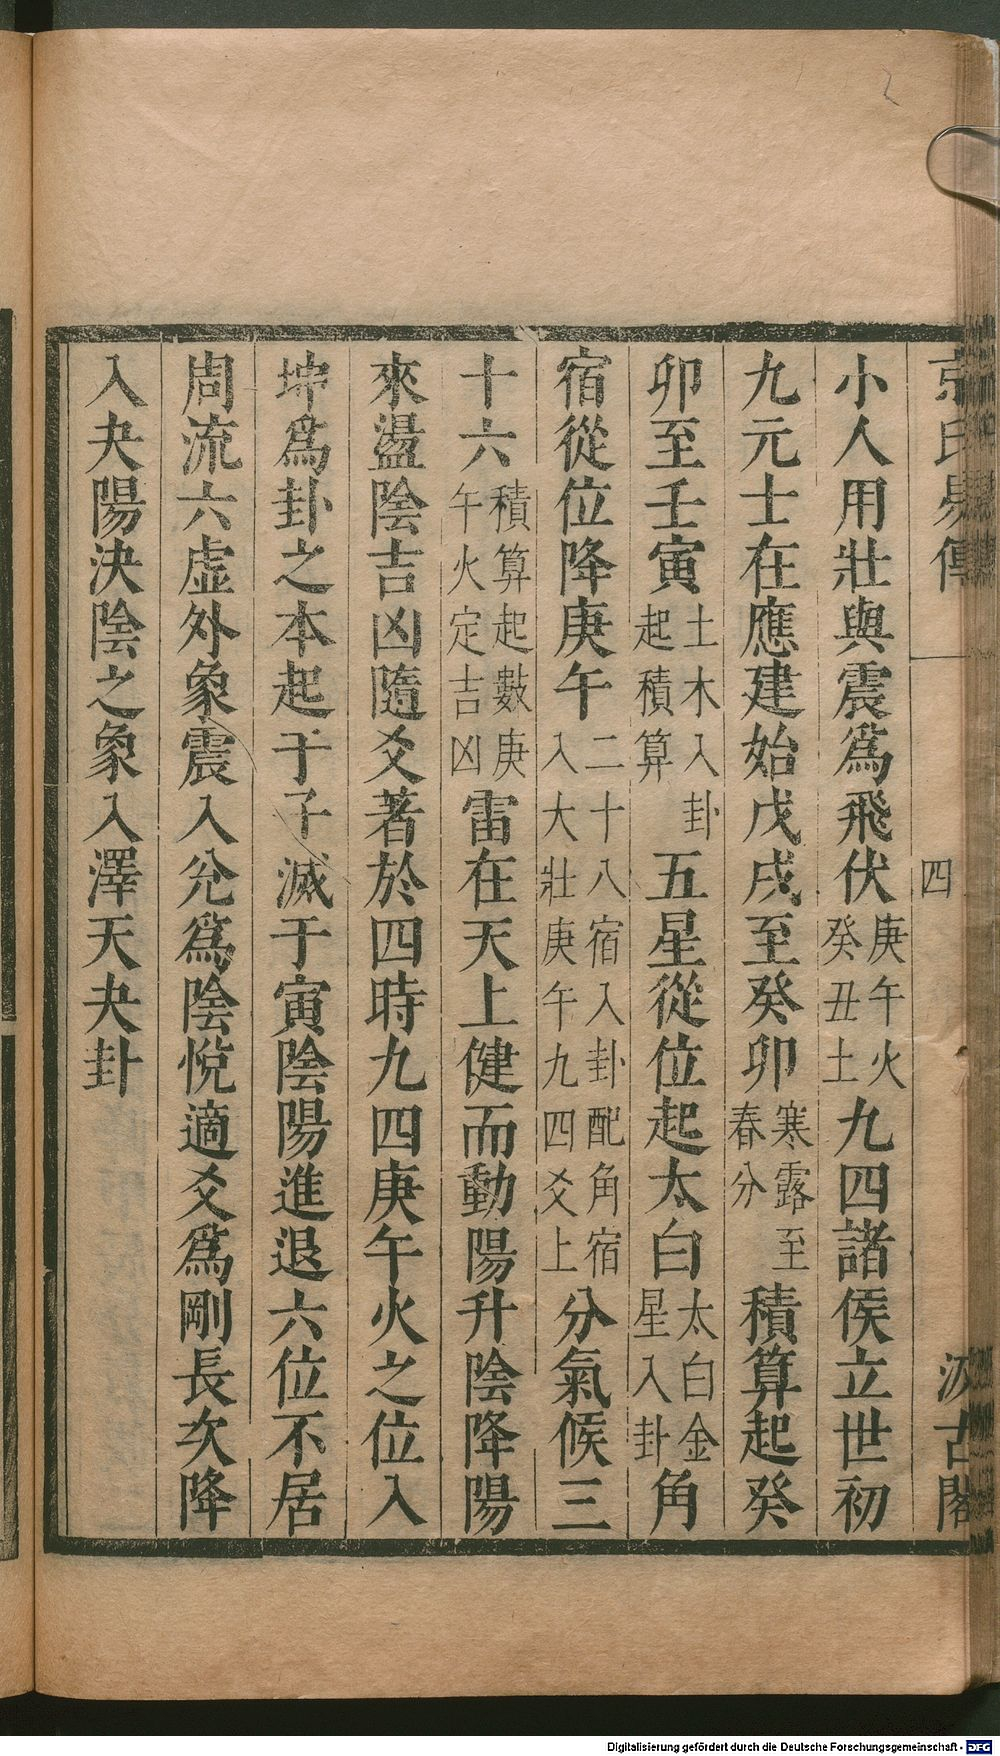 京氏易傳 四 汲古閣
小人用壯與震爲飛伏庚午火癸丑土九四諸侯立世初
九元士在應建始戊戌至癸卯寒露至春分積算起癸
卯至壬寅土木入卦起積算五星從位起太白太白金星入卦角
宿從位降庚午二十八宿入卦配角宿入大壯庚午九四爻上分氣候三
十六積算起數庚午火定吉凶雷在天上健而動陽升陰降陽
來盪陰吉凶隨爻著於四時九四庚午火之位入
坤爲卦之本起于子滅于寅陰陽進退六位不居
周流六虛外象震入兊爲陰悅適爻爲剛長次降
入夬陽決陰之象入澤天夬卦
Digitalisierung gefördert durch die Deutsche Forschungsgemeinschaft - DFG